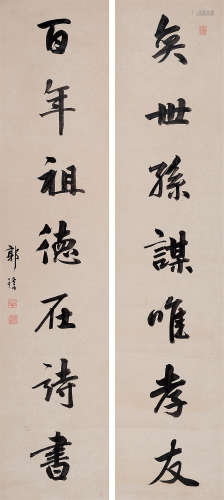 奕世孫謀唯孝友
百年祖德在詩書
郭